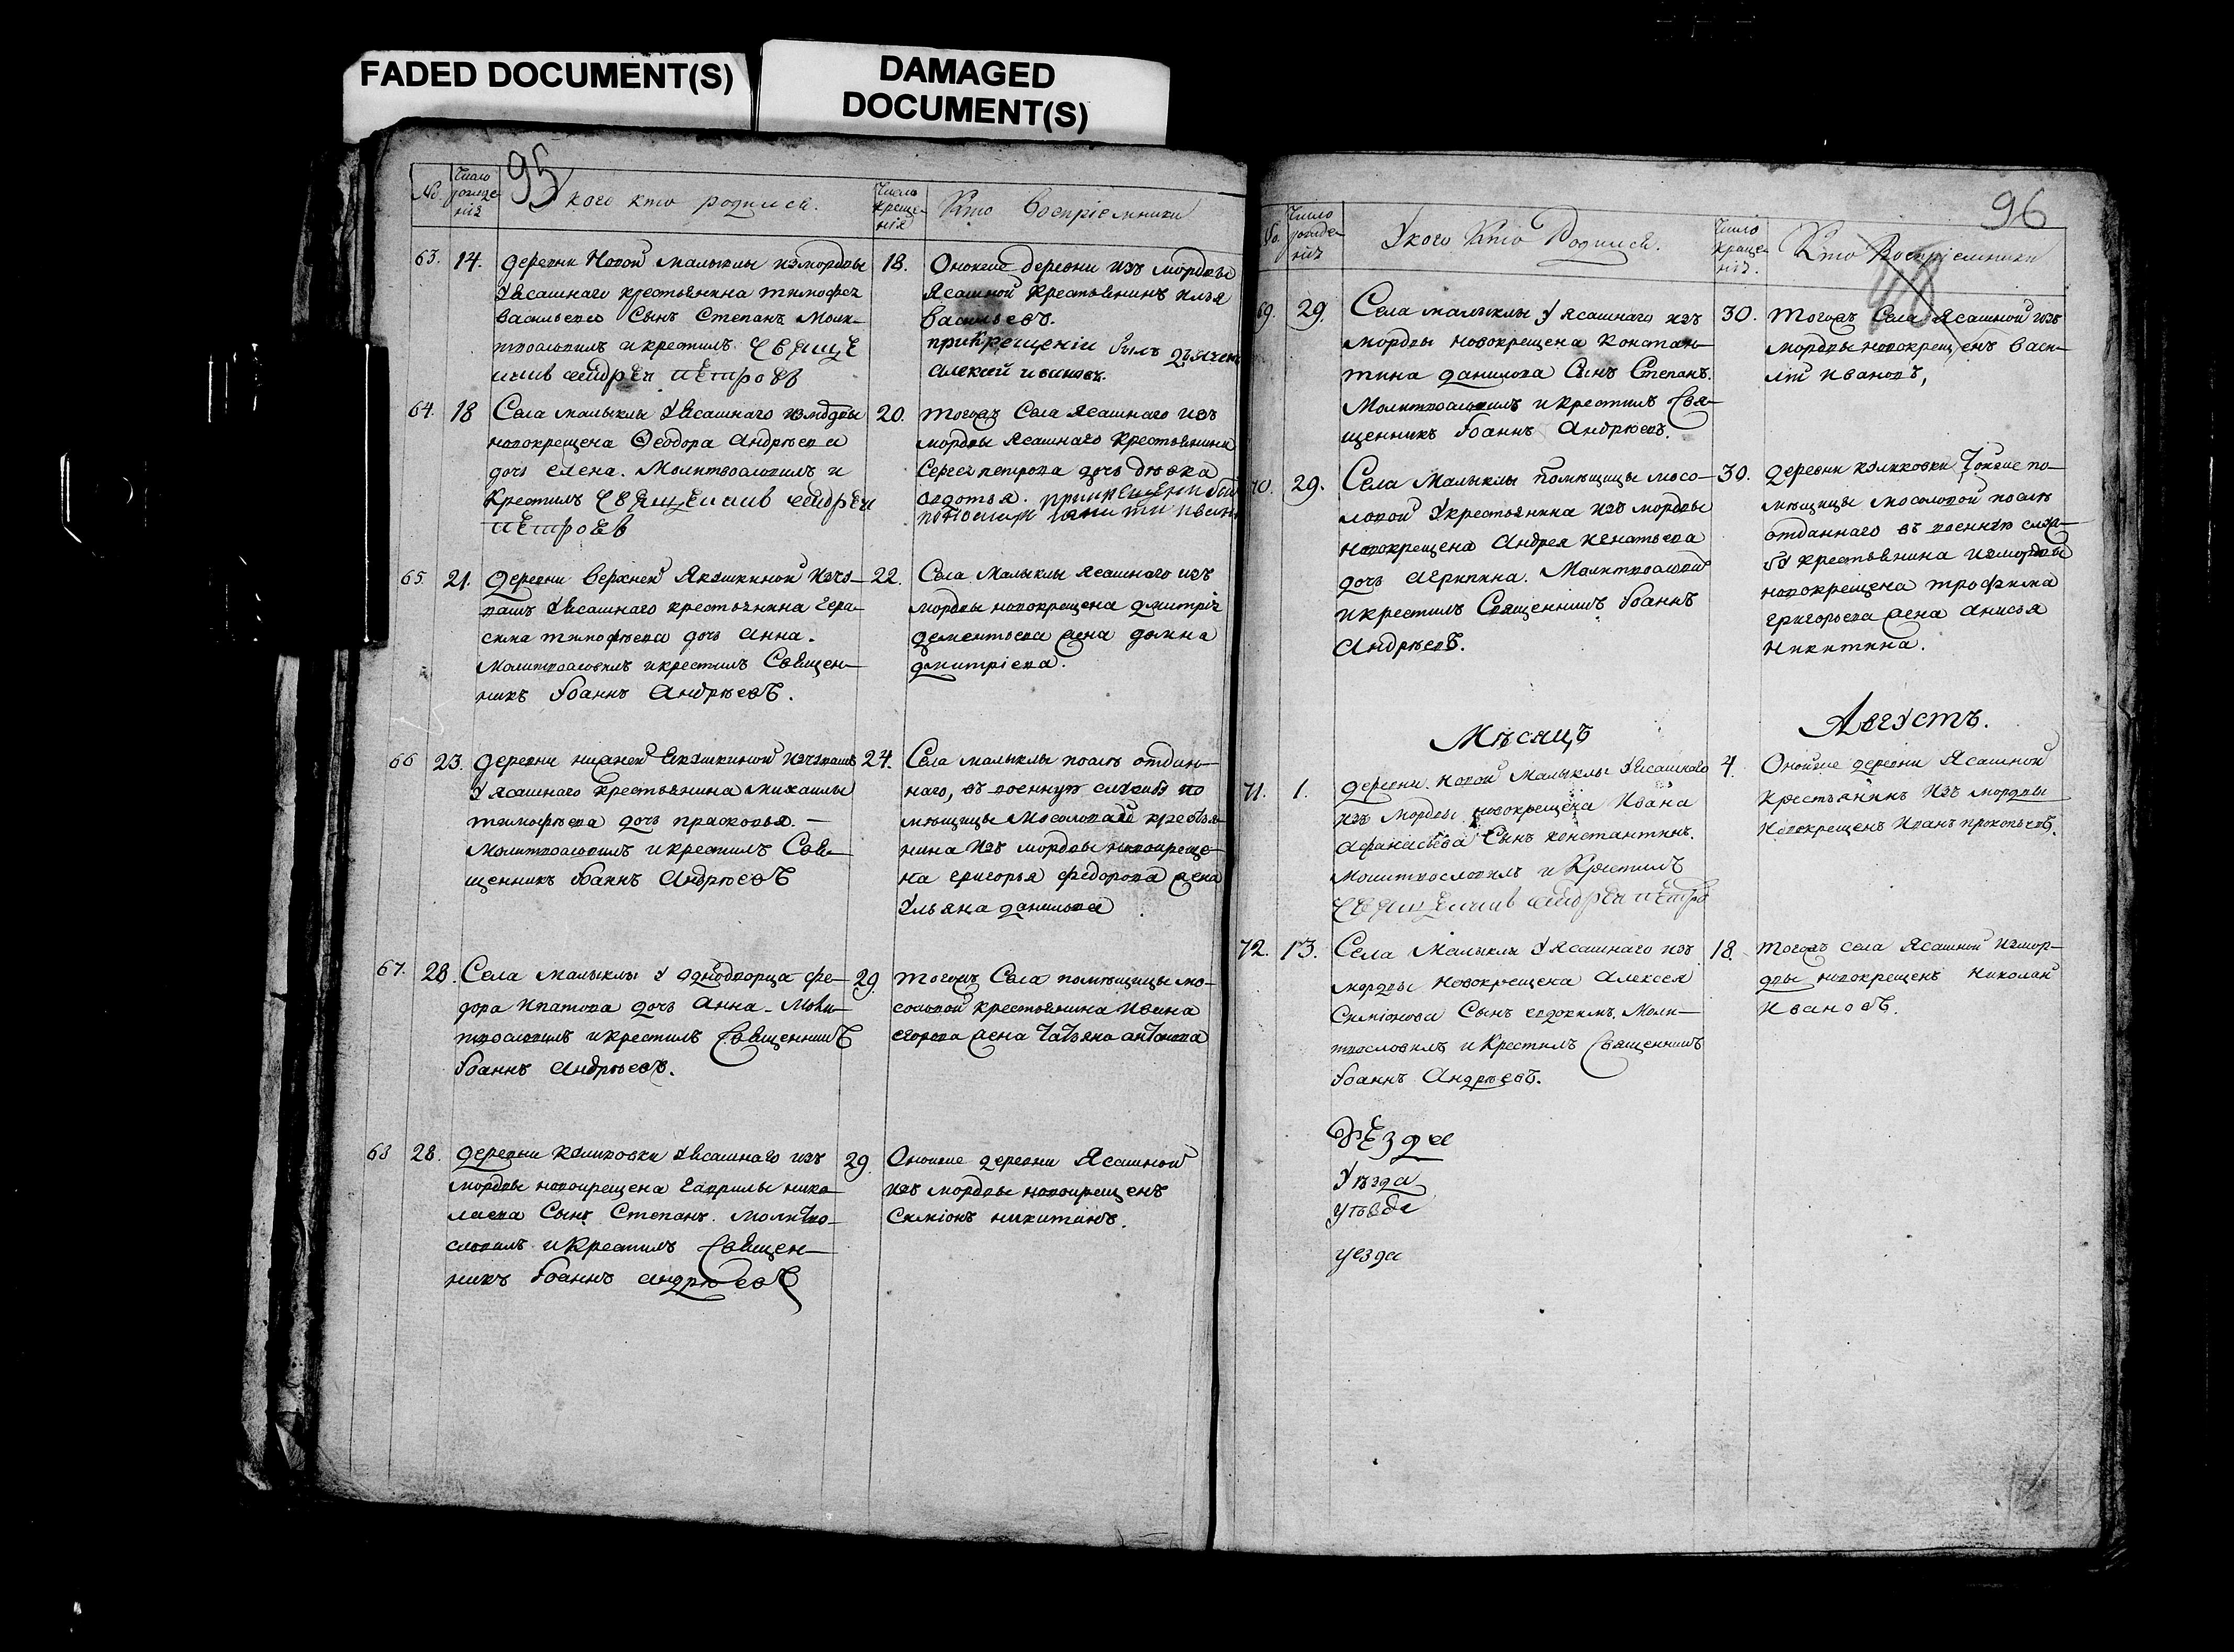 FADED DOCUMENT(S)
DAMAGED
DOCUMENT(S)
95
№
Число рожде-нія
У кого кто родился.
Число креще-нія
Кто воспріемники
63.
14.
деревни Новой малыклы измордвы
У ясашнаго крестьянина тимофея
васильева Сынъ Степанъ Моли-
твословилъ и крестилъ Свяще
никъ андрей петровъ
18.
Оножъ деревни изъ мордвы
Ясашной крестьянинъ илья
васильевъ.
при крещеніи былъ дьячекъ
алексей ивановъ.
64.
18
Села малыклы У ясашнаго измордвы
новокрещена Ѳеодора Андрѣева
дочь елена. Молитвословилъ и
крестилъ Священникъ андрей
петровъ
20.
тогожъ Села ясашнаго изъ
мордвы ясашнаго крестьянина
Сергея петрова дочь дѣвка
авдотья.
65
21.
деревни верхней Якушкиной изчу-
вашъ У ясашнаго крестьянина гера-
сима тимофѣева дочь анна.
Молитвословилъ и крестилъ Священ-
никъ Іоаннъ Андрѣевъ.
22.
Села Малыклы ясашнаго изъ
мордвы новокрещена дмитрія
дементьева жена домна
дмитріева.
66
23.
деревни нижней Екушкиной изчувашъ
У ясашнаго крестьянина михаилы
тимофѣева дочь прасковья. —
Молитвословилъ и крестилъ Свя-
щенникъ Іоаннъ Андрѣевъ
24.
Села малыклы послѣ отдан-
наго, въ военную службу по
мѣщицы Мосоловой крестья-
нина изъ мордвы новокреще-
на григорья федорова жена
Ульяна данилова
67.
28.
Села малыклы У однодворца фе-
дора ипатова дочь Анна. Моли-
твословилъ и крестилъ Священникъ
Іоаннъ Андрѣевъ.
29.
тогожъ Села помѣщицы мо-
соловой крестьянина Ивана
егорова жена татьяна антонова
68
28.
деревни куликовки У ясашнаго изъ
мордвы новокрещена гаврилы нико
лаева Сынъ Степанъ. молитво-
словилъ и крестилъ Священ-
никъ Іоаннъ андрѣевъ
29.
Оножъ деревни Ясашной
изъ мордвы новокрещенъ
Симіонъ никитинъ.
96
Число рожде-нія
У кого Кто Родился.
Число креще-нія.
Кто Воспріемники
69.
29.
Села малыклы У ясашнаго изъ
мордвы новокрещена констан-
тина данилова Сынъ Степанъ.
Молитвословилъ и крестилъ Свя-
щенникъ Іоаннъ Андрѣевъ.
30.
тогожъ Села Ясашной изъ
мордвы новокрещенъ васи-
лій ивановъ,
70.
29.
Села Малыклы помѣщицы мосо-
ловой У крестьянина изъ мордвы
новокрещена Андрея игнатьева
дочь агрипина. Молитвословилъ
и крестилъ Священникъ Іоаннъ
Андрѣевъ.
30.
деревни куликовки Тоежъ по-
мѣщицы мосоловой послѣ
отданнаго въ военную служ-
бу крестьянина измордвы
новокрещена трофима
григорьева жена анисья
никитина.
Мѣсяцъ
Августъ.
71.
1.
деревни новой Малыклы У ясашнаго
изъ мордвы новокрещена Ивана
афанасьева Сынъ константинъ.
молитвословилъ и Крестилъ
Священникъ андрей петро
4.
Оножъ деревни Ясашной
крестьянинъ изъ мордвы
новокрещенъ Иванъ прокопьевъ.
72.
13.
Села Малыклы У ясашнаго изъ
мордвы новокрещена Алексея
Симіонова Сынъ евдокимъ. Моли-
твословилъ и Крестилъ Священникъ
Іоаннъ Андрѣевъ.
18.
тогожъ села Ясашной измор-
двы новокрещенъ николай
Ивановъ.
Уѣзда
уезда